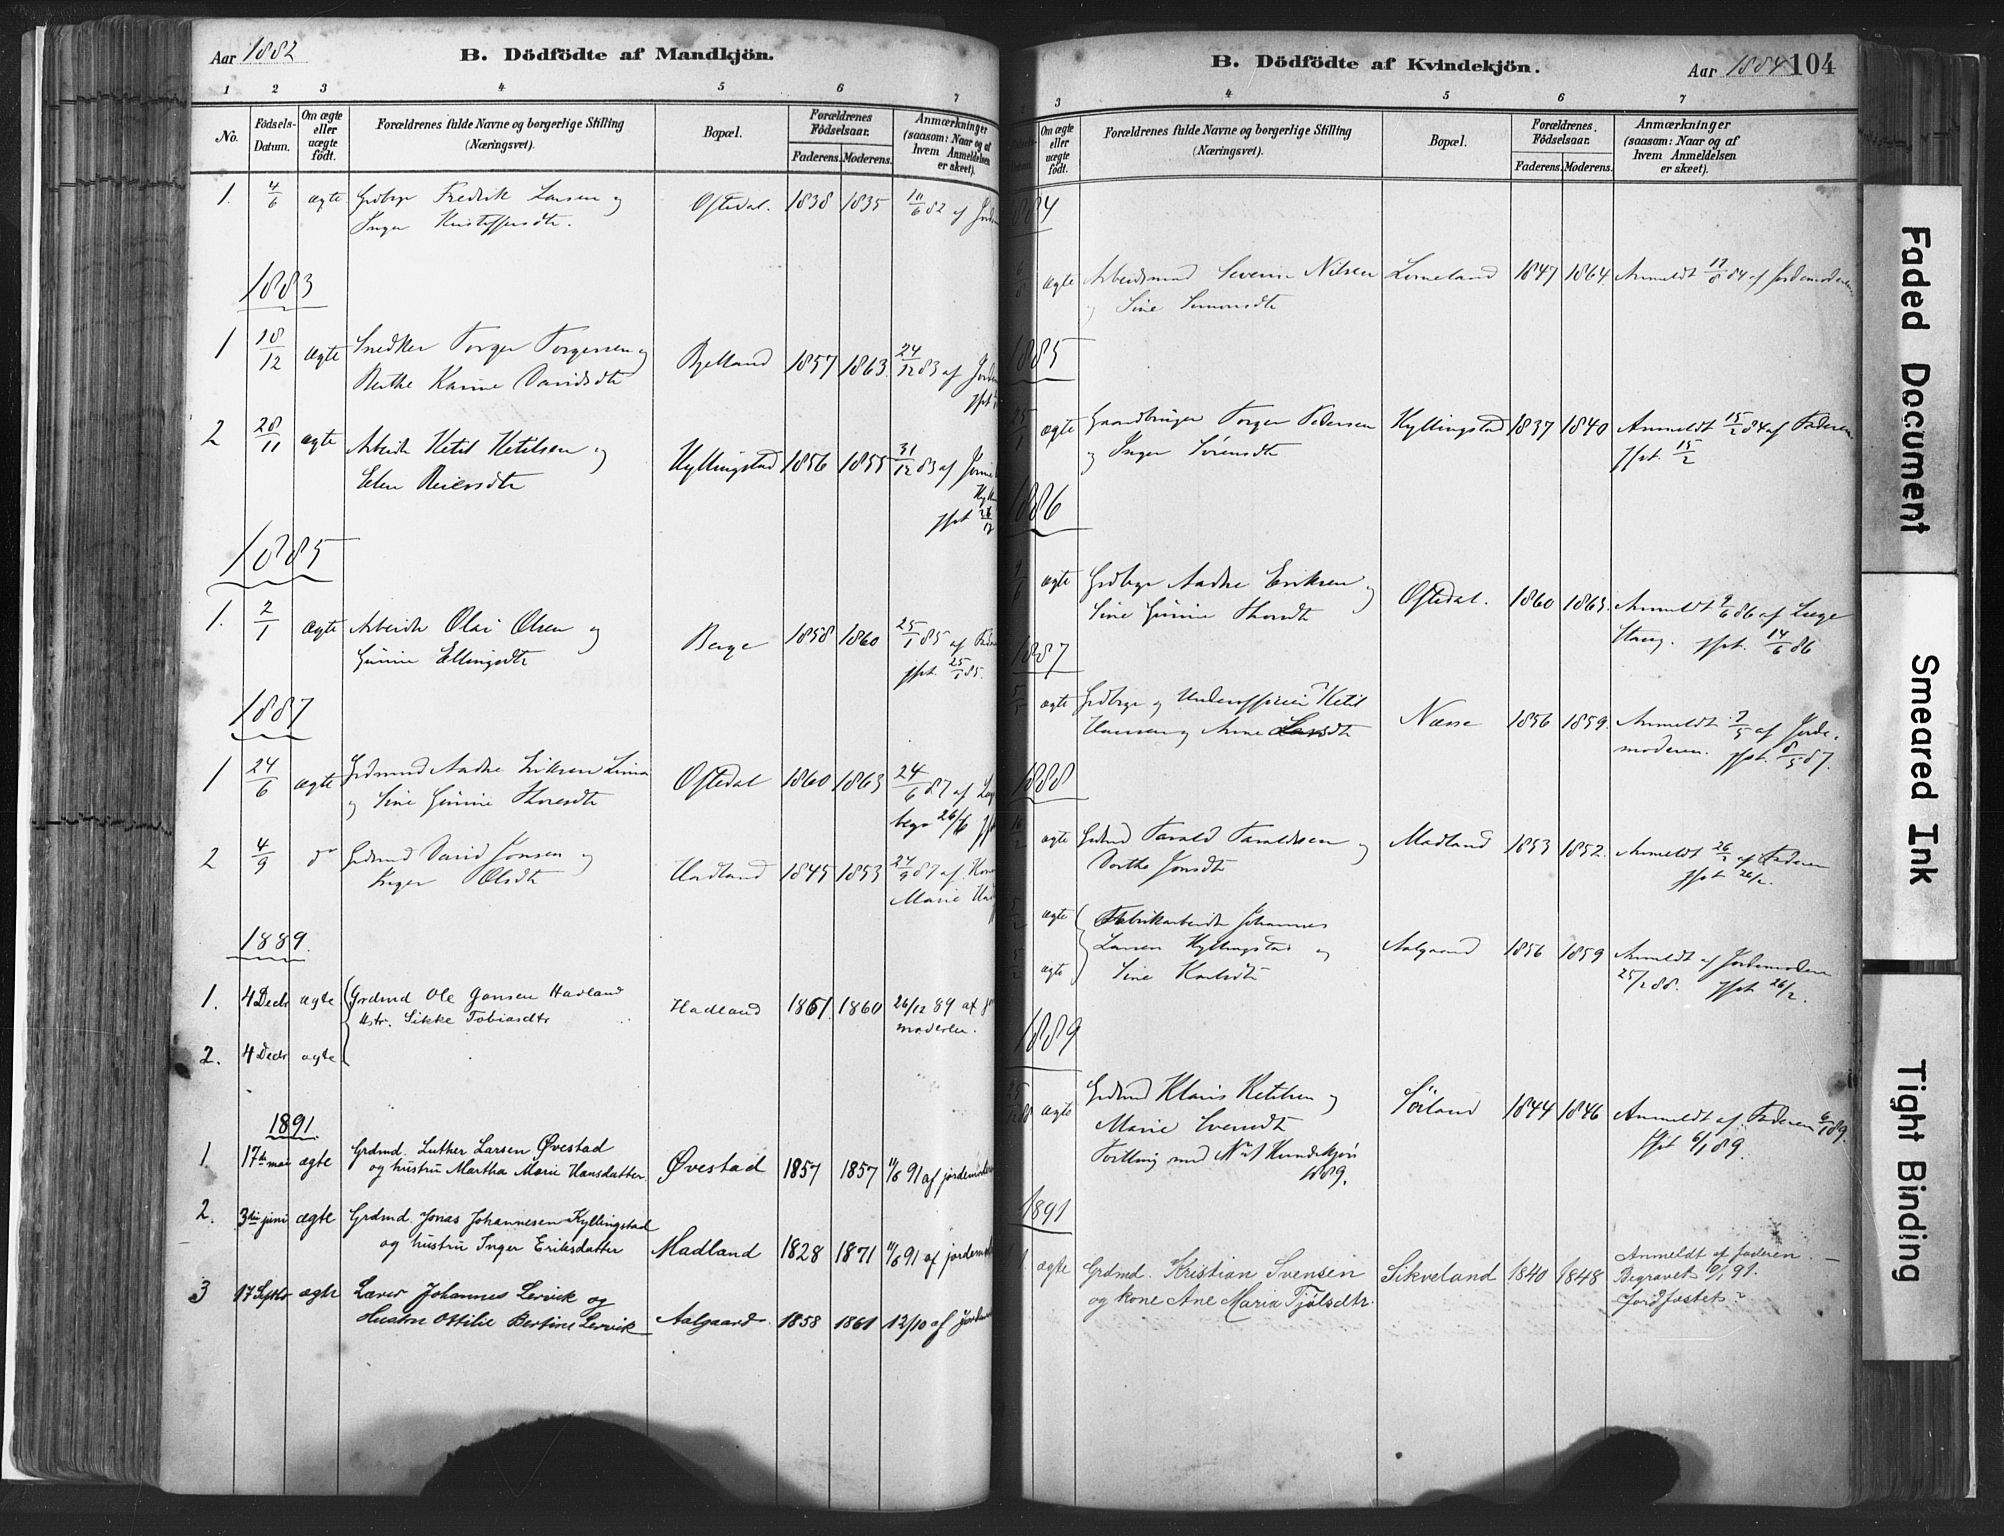 Aar 1882
B. Dödfödte af Mandkjön.
1 2 3 4 5 6 7
No.
Födsels-Datum.
Om ægte eller uægte födt.
Forældrenes fulde Navne og borgerlige Stilling (Næringsvei).
Bopæl.
Forældrenes Födselsaar.
Faderens. Moderens.
Anmærkninger (saasom: Naar og af hvem Anmeldelsen er skeet).
1. 4/6 ægte Grdbgr Fredrik Larsen og Oftedal. 1838 1835 10/6 82 af
Inger Kristoffersdtr.
1883
1 18/12 ægte Snedker Torger Torgersen og Bjelland 1857 1863 24/12 83 af
Berthe Karine Davidsdtr
2 28/11 ægte Arbeidr Ketil Ketilsen og Kyllingstad 1856 1855 31/12 83 af
Elen Reiersdtr
1885
1. 2/1 ægte Arbeidr Olai Olsen og Berge 1858 1860 25/1 85 af
Gunine Ellingsdtr jfst 25/1 85.
1887
1 24/6 ægte Grdmnd Aadne Eriksen Lima Oftedal 1860 1863 24/6 87 af
og Sine Gunine Thoresdtr begr 26/6
2 4/9 do Grdmnd David Jonsen og Hadland 1845 1853 24/9 87 af
Inger Olsdtr Marie
1889.
1. 4 Decbr ægte Grdmd Ole Jonsen Hadland Hadland 1861. 1860 26/12 89 af
Hstr. Sikke Tobiasdtr moderen.
2. 4 Decbr ægte
1891.
1. 17de mai ægte Grdmd. Luther Larsen Øvestad Øvestad 1857 1857 11/6 91 af jordemoderen
og hustru Martha Marie Hansdatter
2. 3die juni ægte Grdmd. Jonas Johannesen Kyllingstad Madland 1828 1871 11/6 91 af
og hustru Inger Eriksdatter
3 17 Septbr ægte Lærer Johannes Lervik og Aalgaard. 1858 1861 12/10 af
Hustru Ottilie Bertine Lervik
B. Dödfödte af Kvindekjön.
Aar 1884 104
3 4 5 6 7
Om ægte eller uægte födt.
Forældrenes fulde Navne og borgerlige Stilling (Næringsvei).
Bopæl.
Forældrenes Födselsaar.
Faderens. Moderens.
Anmærkninger (saasom: Naar og af hvem Anmeldelsen er skeet).
1884
6/8 ægte Arbeidsmand Severin Nilsen Lomeland 1847 1864. Anmeldt 17/8 84 af Jordemoderen
og Sine Simonsdtr
1885
25/1 ægte Gaardbruger Torger Pedersen Kyllingstad 1837 1840 Anmeldt 15/2 84 af Faderen
og Inger Sørensdtr jfst. 15/2
1886
9/6 ægte Grdbgr Aadne Eriksen og Oftedal. 1860 1863. Anmeldt 9/6 86 af Læge
Sine Gunine Thorsdtr Stang. jfst. 14/6 86
1887
5/5 ægte Grdbgr og Underofficier Ketil Næsse 1856 1859. Anmeldt 7/5 af Jorde-
Hansen og Anne Larsdtr moderen. jfst. 8/5 87.
1888
16/2 ægte Grdmd Tarald Taraldsen og Madland 1853 1852. Anmeldt 26/2 af Faderen
Dorthe Jonsdtr jfst 26/2.
5/2 ægte Fabrikarbeidr Johannes
Larsen Kyllingstad og Aalgaard 1856 1859 Anmeldt af Jordemoderen
5/2 ægte Sine Karlsdtr 25/2 88. jfst 26/2.
1889
25/12 88 ægte Grdmd Klaus Ketilsen og Sörland 1844 1846 Anmeldt af Faderen 6/1 89.
Marie Svensdtr jfst 6/1 89.
Tvilling med No 1 Kvindekjön
1889.
1891
1. ægte Grdmd. Kristian Svensen Sikveland 1840 1848 Anmeldt af faderen.
og kone Ane Maria Tjølsdtr. Begravet 10/1 91.
Jordfæstet?
Faded Document
Smeared Ink
Tight Binding